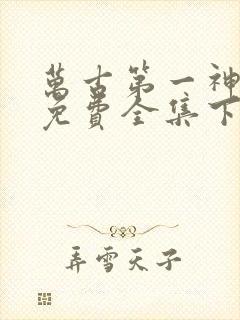 萬古第一神
免費全集下
弄雪天子